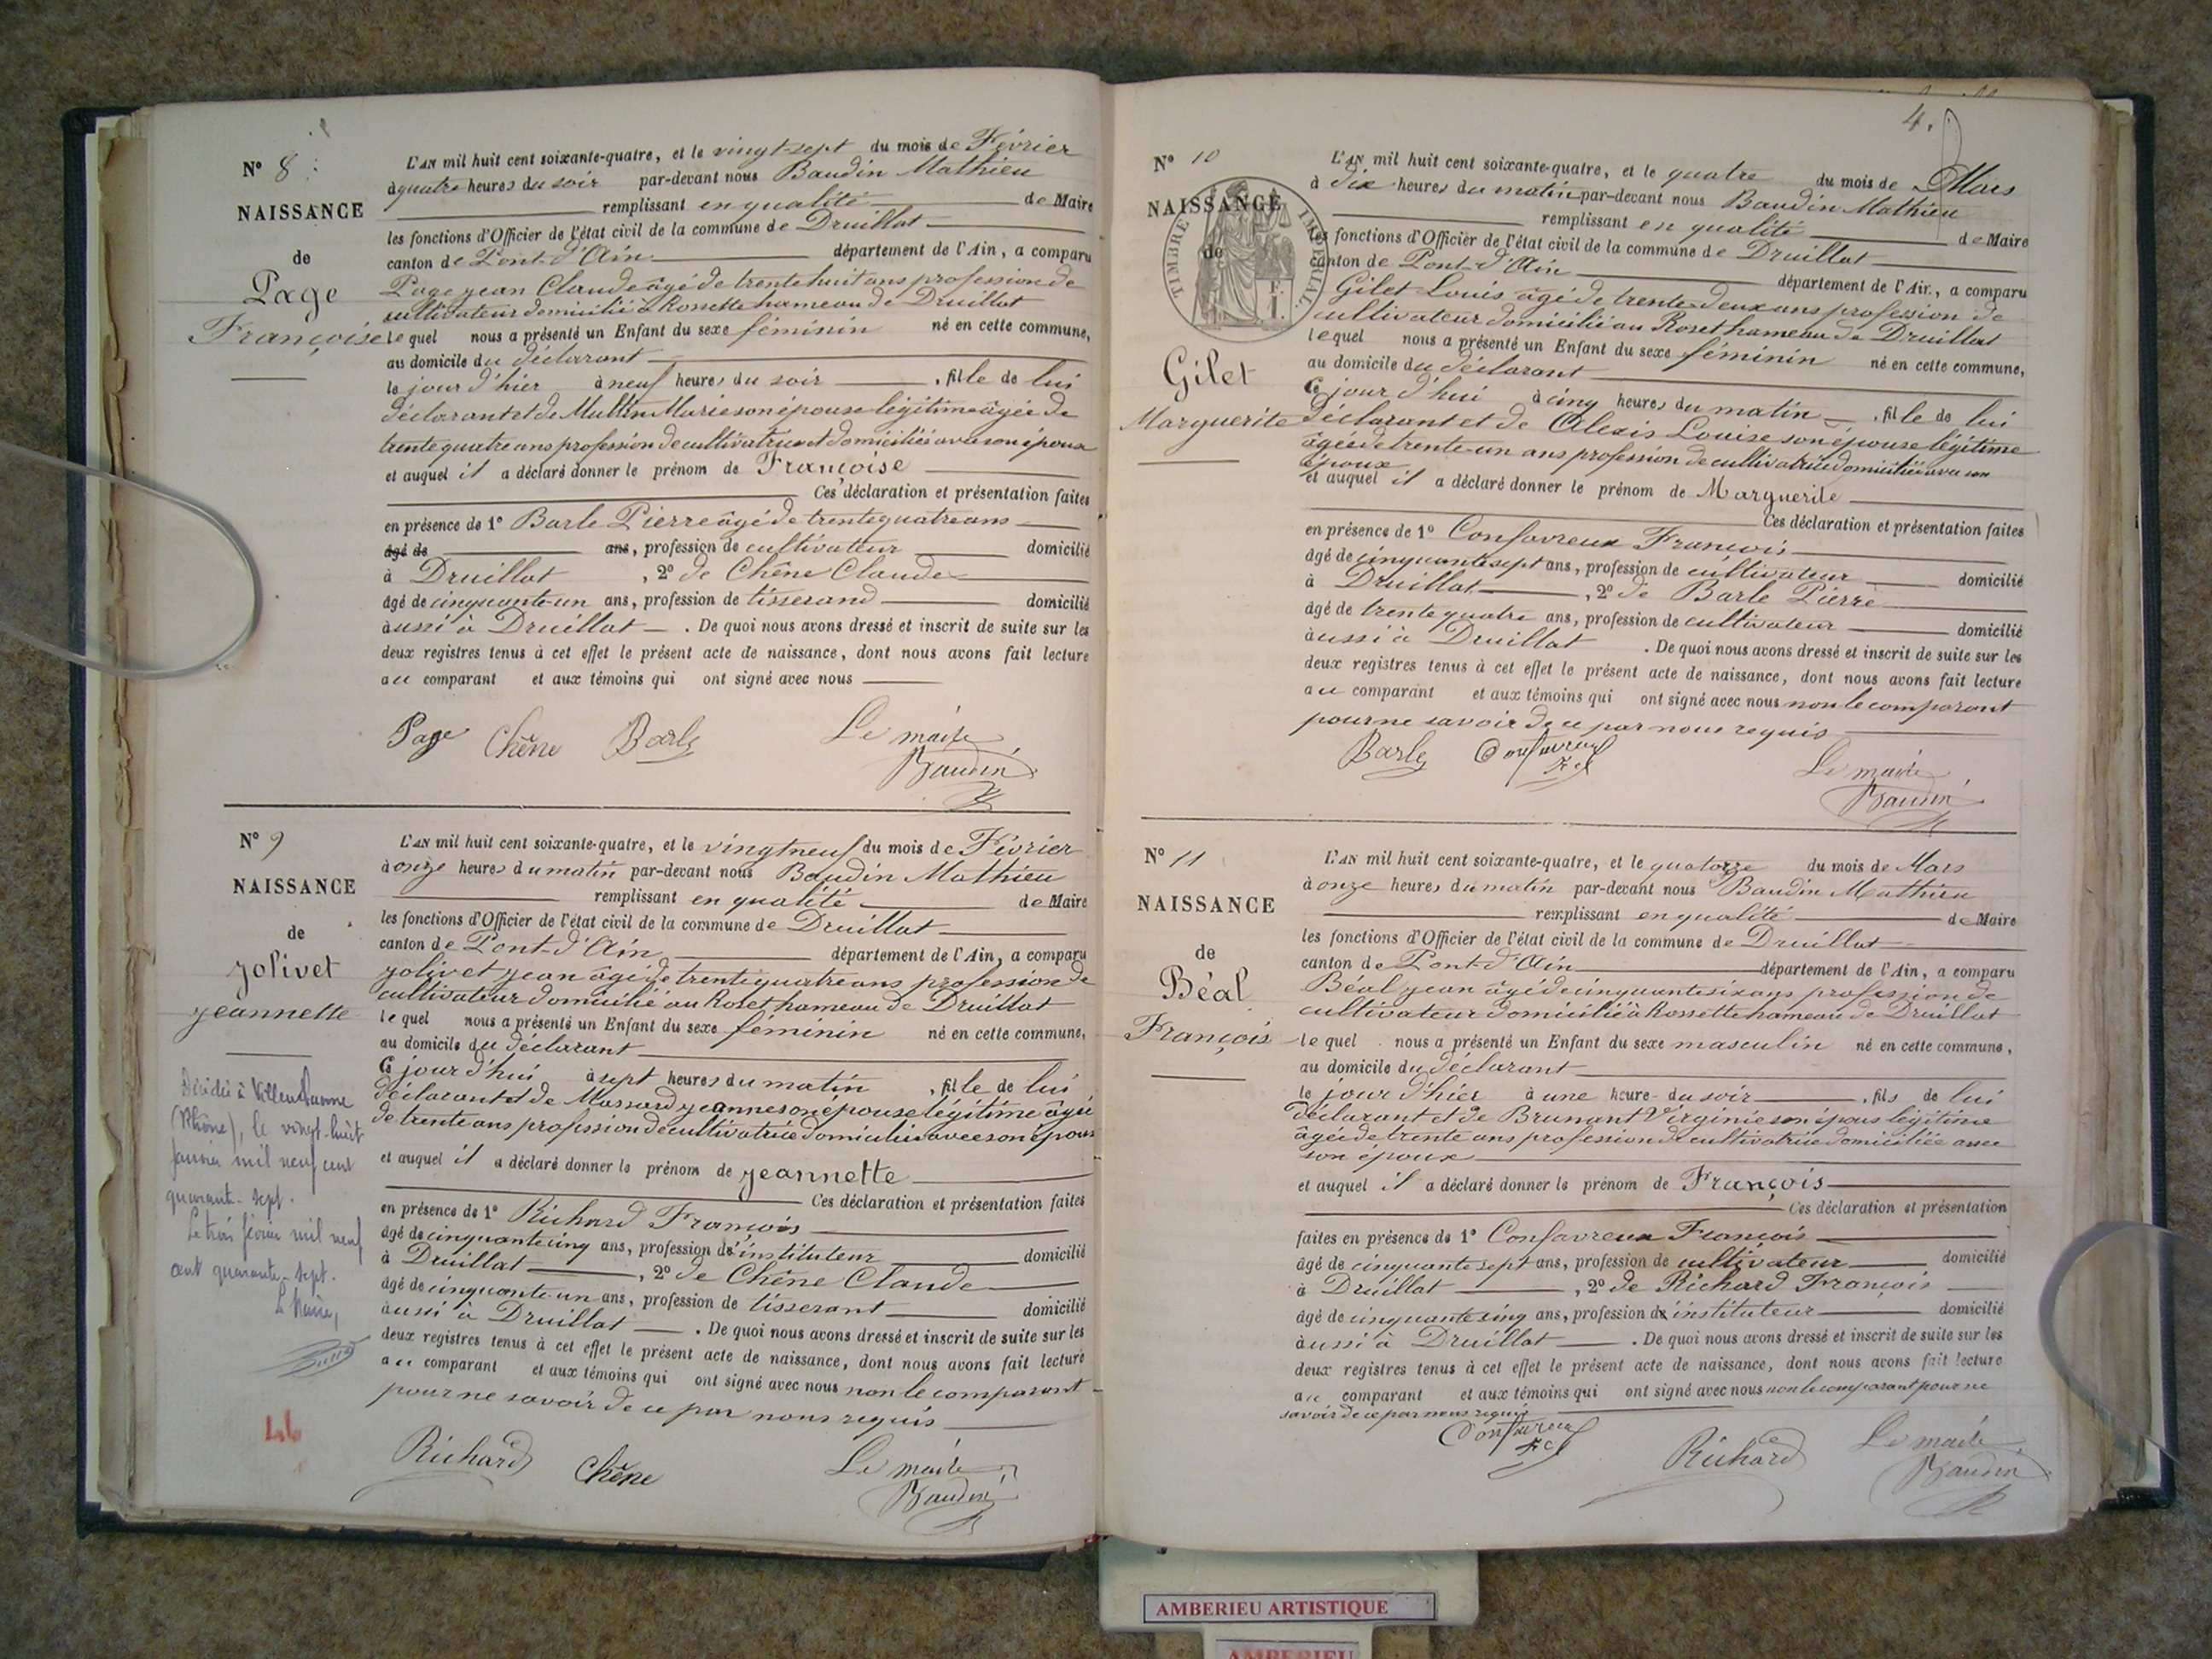 N° 8
NAISSANCE
de
Page
Françoise
L'AN mil huit cent soixante-quatre, et le vingt-sept du mois de Février
à quatre heures du soir par-devant nous Baudin Mathieu
remplissant en qualité de Maire
les fonctions d'Officier de l'état civil de la commune de Druillat
canton de Pont-d'Ain département de l'Ain, a comparu
Page Jean Claude âgé de trente huit ans profession de
cultivateur domicilié à Rossette hameau de Druillat
lequel nous a présenté un Enfant du sexe féminin né en cette commune,
au domicile du déclarant
le jour d'hier à neuf heures du soir , fille de lui
déclarant et de Marie son épouse légitime âgée de
trente quatre ans profession de cultivatrice et domiciliée avec son époux
et auquel il a déclaré donner le prénom de Françoise
Ces déclaration et présentation faites
en présence de 1° Barle Pierre âgé de trente quatre ans
âgé de ans, profession de cultivateur domicilié
à Druillat , 2° de Chêne Claude
âgé de cinquante-un ans, profession de tisserand domicilié
aussi à Druillat . De quoi nous avons dressé et inscrit de suite sur les
deux registres tenus à cet effet le présent acte de naissance, dont nous avons fait lecture
au comparant et aux témoins qui ont signé avec nous
Page Chêne Barle Le maire
Baudin
N° 9
NAISSANCE
de
Jolivet
Jeannette
Décédée à Villeurbanne
(Rhône), le vingt-huit
janvier mil neuf cent
quarante-sept.
Le trois février mil neuf
cent quarante-sept.
Le Maire,
44
L'AN mil huit cent soixante-quatre, et le vingt neuf du mois de Février
à onze heures du matin par-devant nous Baudin Mathieu
remplissant en qualité de Maire
les fonctions d'Officier de l'état civil de la commune de Druillat
canton de Pont-d'Ain département de l'Ain, a comparu
Jolivet Jean âgé de trente quatre ans profession de
cultivateur domicilié au Roset hameau de Druillat
lequel nous a présenté un Enfant du sexe féminin né en cette commune,
au domicile du déclarant
Ce jour d'hui à sept heures du matin , fille de lui
déclarant et de Massard Jeanne son épouse légitime âgée
de trente ans profession de cultivatrice domiciliée avec son époux
et auquel il a déclaré donner le prénom de Jeannette
Ces déclaration et présentation faites
en présence de 1° Richard François
âgé de cinquante cinq ans, profession d'instituteur domicilié
à Druillat , 2° de Chêne Claude
âgé de cinquante-un ans, profession de tisserant domicilié
aussi à Druillat . De quoi nous avons dressé et inscrit de suite sur les
deux registres tenus à cet effet le présent acte de naissance, dont nous avons fait lecture
au comparant et aux témoins qui ont signé avec nous non le comparant
pour ne savoir de ce par nous requis
Richard Chêne Le maire
Baudin
4.
N° 10
NAISSANCE
de
TIMBRE IMPÉRIAL
Gilet
Marguerite
L'AN mil huit cent soixante-quatre, et le quatre du mois de Mars
à dix heures du matin par-devant nous Baudin Mathieu
remplissant en qualité de Maire
les fonctions d'Officier de l'état civil de la commune de Druillat
canton de Pont-d'Ain département de l'Ain, a comparu
Gilet Louis âgé de trente-deux ans profession de
cultivateur domicilié au Roset hameau de Druillat
lequel nous a présenté un Enfant du sexe féminin né en cette commune,
au domicile du déclarant
Ce jour d'hui à cinq heures du matin , fille de lui
déclarant et de Alexis Louise son épouse légitime
âgée de trente-un ans profession de cultivatrice domiciliée avec son
époux
et auquel il a déclaré donner le prénom de Marguerite
Ces déclaration et présentation faites
en présence de 1° Confavreux François
âgé de cinquante sept ans, profession de cultivateur domicilié
à Druillat , 2° de Barle Pierre
âgé de trente quatre ans, profession de cultivateur domicilié
aussi à Druillat . De quoi nous avons dressé et inscrit de suite sur les
deux registres tenus à cet effet le présent acte de naissance, dont nous avons fait lecture
au comparant et aux témoins qui ont signé avec nous non le comparant
pour ne savoir de ce par nous requis
Barle Confavreux Le maire
Baudin
N° 11
NAISSANCE
de
Béal
François
L'AN mil huit cent soixante-quatre, et le quatorze du mois de Mars
à onze heures du matin par-devant nous Baudin Mathieu
remplissant en qualité de Maire
les fonctions d'Officier de l'état civil de la commune de Druillat
canton de Pont-d'Ain département de l'Ain, a comparu
Béal Jean âgé de cinquante six ans profession de
cultivateur domicilié à Rossette hameau de Druillat
lequel nous a présenté un Enfant du sexe masculin né en cette commune,
au domicile du déclarant
le jour d'hier à une heure du soir , fils de lui
déclarant et de Brunant Virginie son épous légitime
âgée de trente ans profession de cultivatrice domiciliée avec
son époux
et auquel il a déclaré donner le prénom de François
Ces déclaration et présentation
faites en présence de 1° Confavreux François
âgé de cinquante sept ans, profession de cultivateur domicilié
à Druillat , 2° de Richard François
âgé de cinquante cinq ans, profession d'instituteur domicilié
aussi à Druillat . De quoi nous avons dressé et inscrit de suite sur les
deux registres tenus à cet effet le présent acte de naissance, dont nous avons fait lecture
au comparant et aux témoins qui ont signé avec nous non le comparant pour ne
savoir de ce par nous requis
Confavreux Richard Le maire
Baudin
AMBERIEU ARTISTIQUE
AMBERIEU